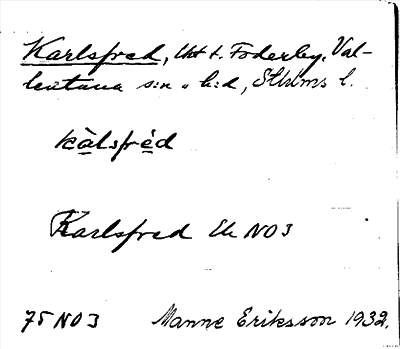 Karlsfred, lht t. Foderby, Val-
lentuna sn o. h:d, Sthlms l.
kàlsfréd
Karlsfred Ek NO3
75 NO3 Manne Eriksson 1932.